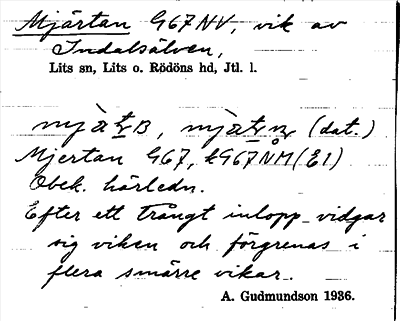 Mjärtan G67NV, vik av
Indalsälven,
Lits sn, Lits o. Rödöns hd, Jtl. l.
(dat.)
Mjertan G67, kG67NM (E1)
Obek. härledn.
Efter ett trångt inlopp vidgar
sig viken och förgrenas i
flera smärre vikar.
A. Gudmundson 1936.